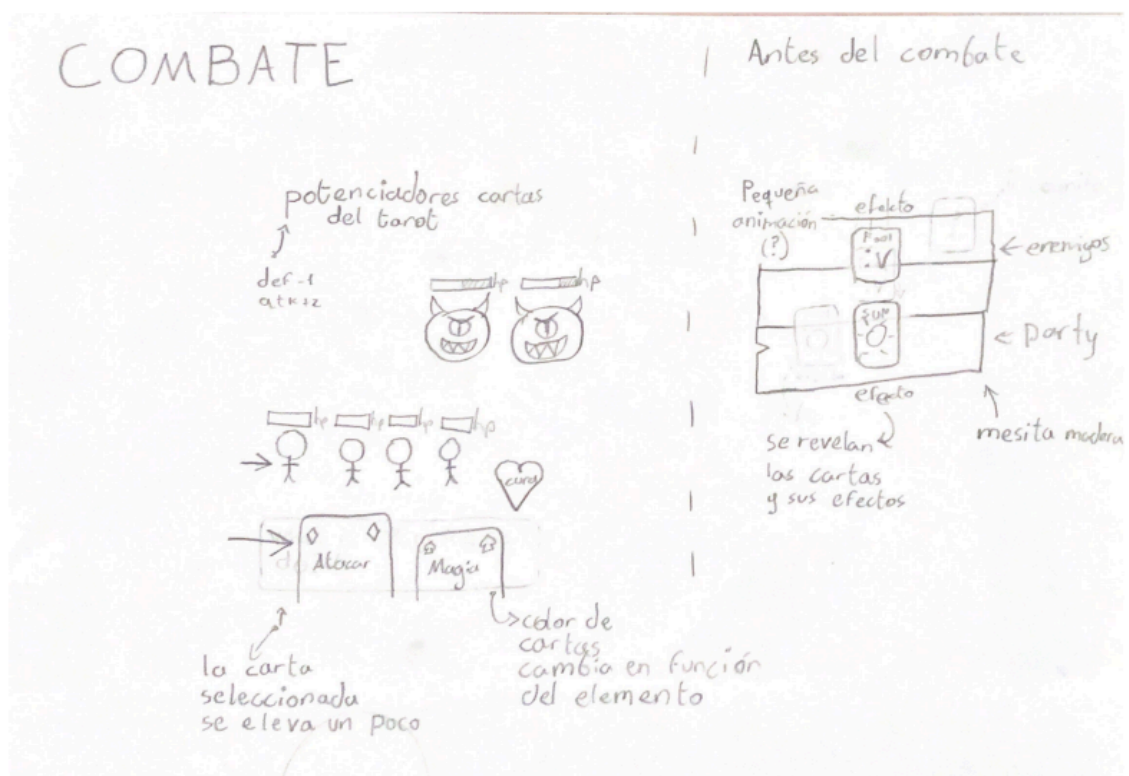 COMBATE
potenciadores cartas
del tarot
def-1
atk+2
hp
hp
hp
hp
hp
hp
cura
Atacar
Magia
la carta
seleccionada
se eleva un poco
color de
cartas
cambia en función
del elemento
Antes del combate
Pequeña
animación
(?)
efekto
Fool
:v
← enemigos
sun
← party
efecto
se revelan
las cartas
y sus efectos
mesita madera